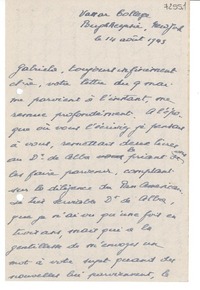 72951
Vassar College
Poughkeepsie, New York
le 14 août 1943
Gabriela, toujours infiniment
chère, votre lettre du 9 mai
me parvient à l'instant, me
remue profondément. A l'
que où vous l'écriviez je pensais
à vous, remettais deux livres
au Dr. de Alba priant de
les faire parvenir, comptant
sur la diligence du Pan American
et
que je n'ai vu qu'une fois en
trois ans, mais qui a la
gentillesse de m'envoyer un
mot à votre sujet quand des
nouvelles lui parviennent, le